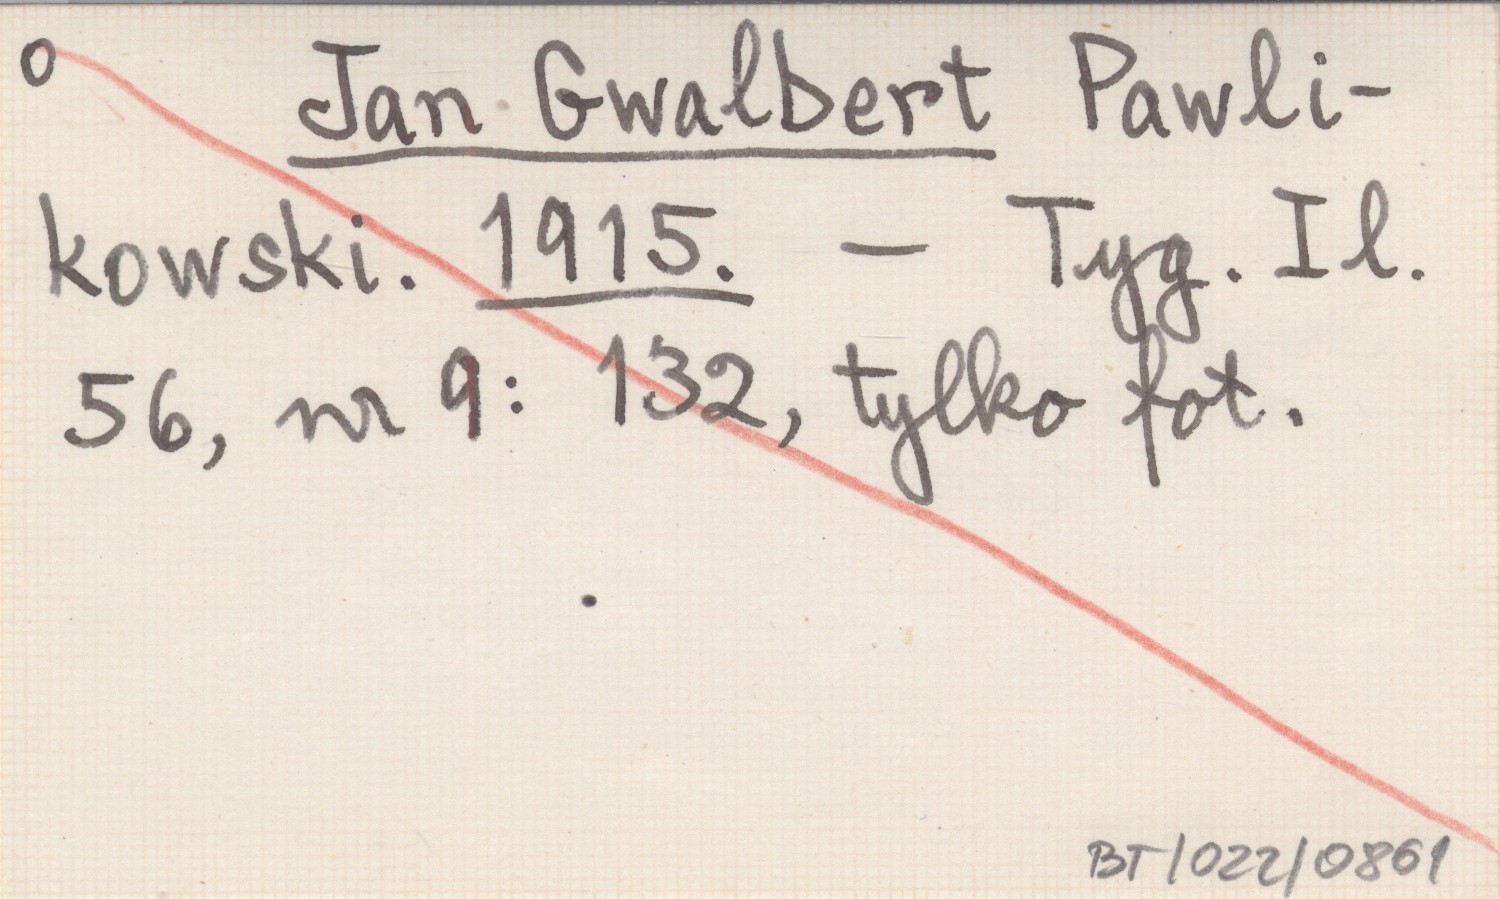 o Jan Gwalbert Pawli-
kowski. 1915. — Tyg. Il.
56, nr 9: 132, tylko fot.
BT/022/0861